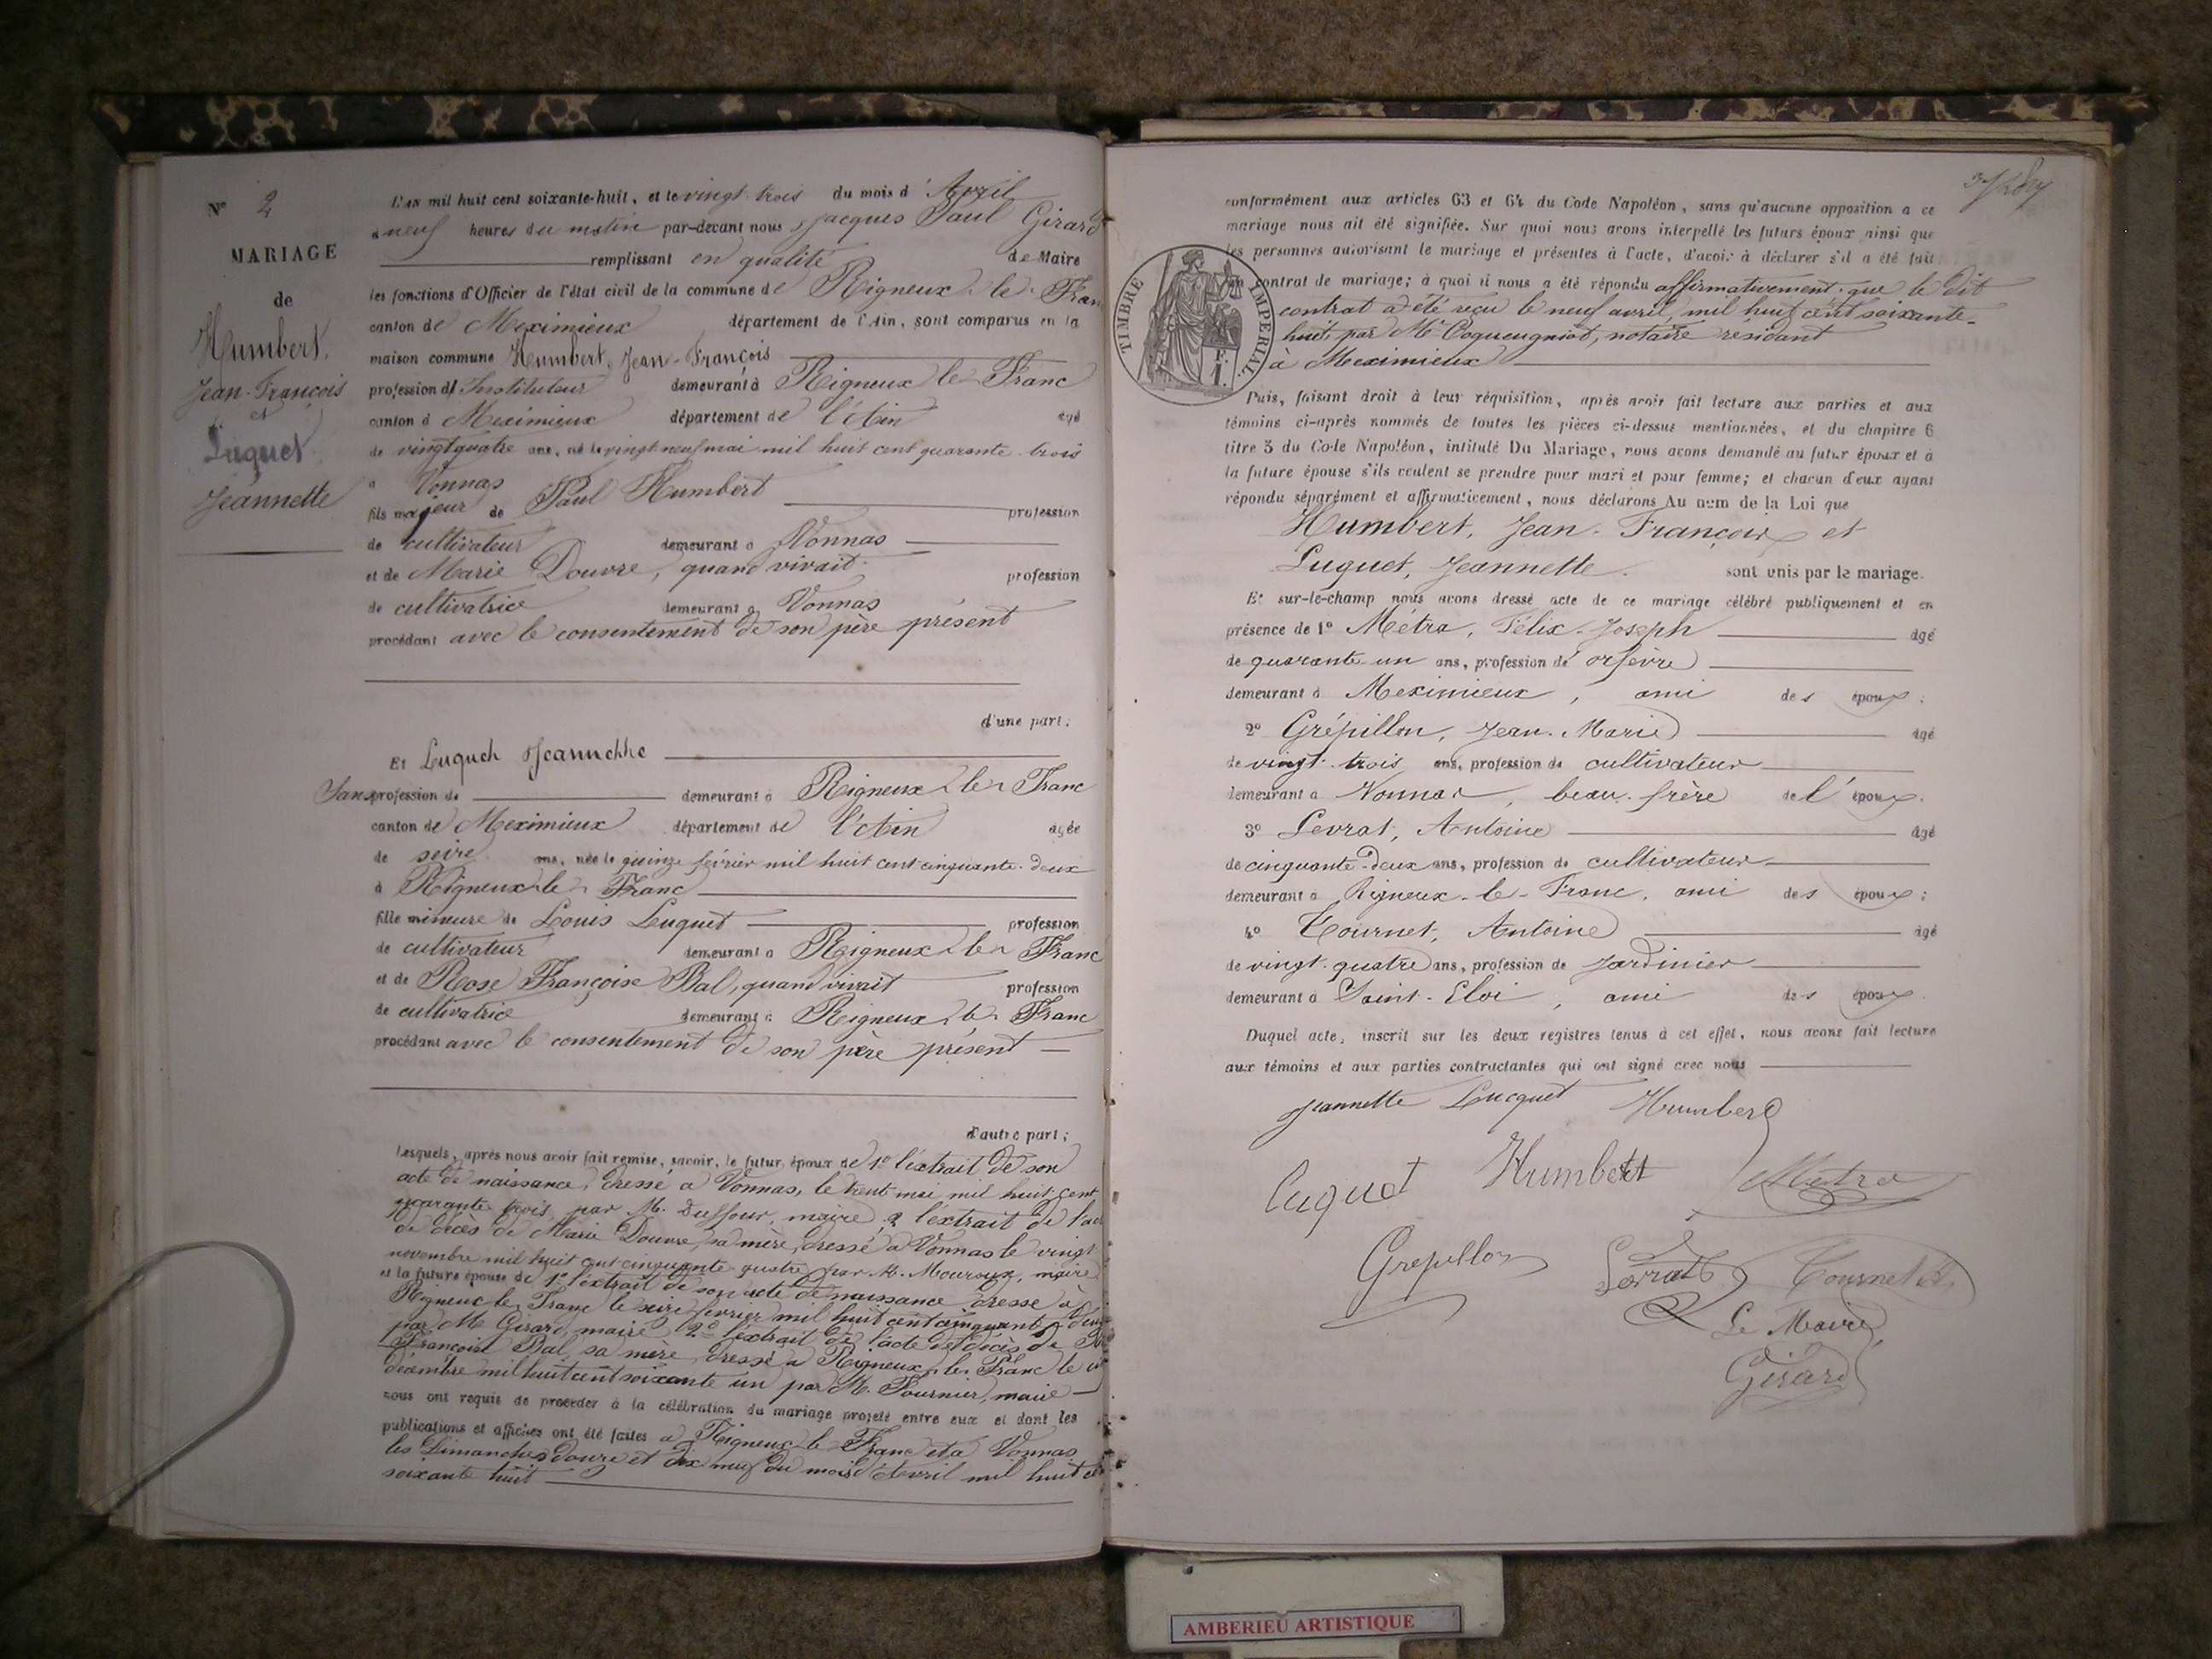 N° 2
MARIAGE
de
Humbert,
Jean-François
et
Luquet
Jeannette
L'an mil huit cent soixante-huit, et le vingt-trois du mois d'Avril
à neuf heures du matin par-devant nous Jacques Paul Girard
remplissant en qualité de Maire
les fonctions d'Officier de l'état civil de la commune de Rigneux-le-Fran
canton de Meximieux département de l'Ain, sont comparus en la
maison commune Humbert, Jean-François
profession d' Instituteur demeurant à Rigneux le Franc
canton d Meximieux département de l'Ain âgé
de vingt quatre ans, né le vingt neuf mai mil huit cent quarante-trois
à Vonnas
fils majeur de Paul Humbert profession
de cultivateur demeurant à Vonnas
et de Marie Douvre, quand vivait profession
de cultivatrice demeurant à Vonnas
procédant avec le consentement de son père présent
d'une part;
Et Luquet Jeannette
Sans profession de demeurant à Rigneux-le-Franc
canton de Meximieux département de l'Ain agée
de seize ans, née le quinze février mil huit cent cinquante-deux
à Rigneux-le-Franc
fille mineure de Louis Luquet profession
de cultivateur demeurant à Rigneux-le-Franc
et de Rose Françoise Bal, quand vivait profession
de cultivatrice demeurant à Rigneux-le-Franc
procédant avec le consentement de son père présent
d'autre part;
Lesquels, après nous avoir fait remise, savoir, le futur époux de 1° l'extrait de son
acte de naissance, dressé à Vonnas, le trent mai mil huit cent
quarante trois par M. Duffour, maire 2° l'extrait de l'ac
de décès de Marie Douvre, sa mère, dressé à Vonnas le vingt
novembre mil huit cent cinquante-quatre par M. Mouroux, maire
et la future épouse de 1° l'extrait de son acte de naissance dressé à
Rigneux-le-Franc le seize février mil huit cent cinquante-deux
par M. Girard, maire 2° l'extrait de l'acte de décès de
Françoise Bal, sa mère, dressé à Rigneux-le-Franc le
décembre mil huit cent soixante un par M. Fournier, maire
nous ont requis de procéder à la célébration du mariage projeté entre eux et dont les
publications et affiches ont été faites à Rigneux-le-Franc et à Vonnas
les Dimanches douze et dix neuf du mois d'Avril mil huit ce
soixante huit
conformément aux articles 63 et 64 du Code Napoléon, sans qu'aucune opposition a ce
mariage nous ait été signifiée. Sur quoi nous avons interpellé les futurs époux ainsi que
les personnes autorisant le mariage et présentes à l'acte, d'avoir à déclarer s'il a été fait
un contrat de mariage; à quoi il nous a été répondu affirmativement que le dit
contrat a été reçu le neuf avril, mil huit cent soixante-
huit par Me Coqueugniot, notaire résidant
à Meximieux
TIMBRE IMPERIAL
1 F.
Puis, faisant droit à leur réquisition, après avoir fait lecture aux parties et aux
témoins ci-après nommés de toutes les pièces ci-dessus mentionnées, et du chapitre 6
titre 5 du Code Napoléon, intitulé Du Mariage, nous avons demandé au futur époux et à
la future épouse s'ils veulent se prendre pour mari et pour femme; et chacun d'eux ayant
répondu séparément et affirmativement, nous déclarons Au nom de la Loi que
Humbert, Jean-François et
Luquet, Jeannette. sont unis par le mariage.
Et sur-le-champ nous avons dressé acte de ce mariage célébré publiquement et en
présence de 1° Métra, Félix-Joseph âgé
de quarante-un ans, profession de orfèvre
demeurant à Meximieux, ami des époux;
2° Grépillon, Jean-Marie âgé
de vingt-trois ans, profession de cultivateur
demeurant à Vonnas, beau-frère de l'époux.
3° Levrat, Antoine âgé
de cinquante-deux ans, profession de cultivateur
demeurant à Rigneux-le-Franc, ami des époux;
4° Tournet, Antoine âgé
de vingt-quatre ans, profession de Jardinier
demeurant à Saint-Eloi, ami des époux
Duquel acte, inscrit sur les deux registres tenus à cet effet, nous avons fait lecture
aux témoins et aux parties contractantes qui ont signé avec nous
Jeannette Lucquet Humbert
Luquet Humbert Métra
Grépillon Levrat Tournet A
Le Maire
Girard
AMBERIEU ARTISTIQUE